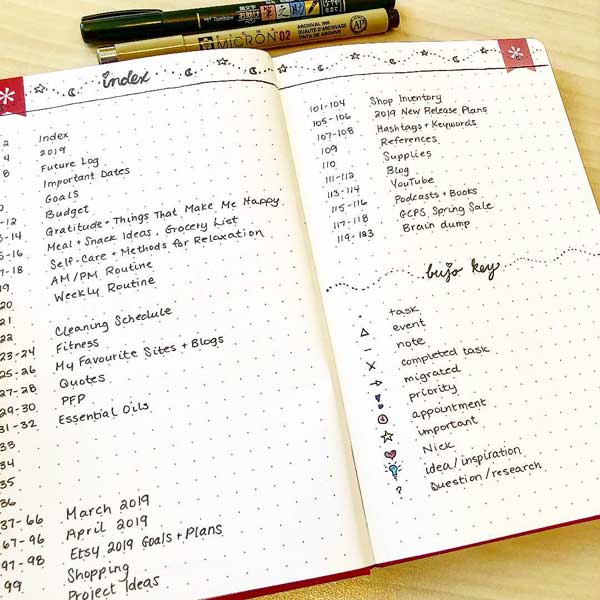 Tombow
MICRON 02
ARCHIVAL INK
QUALITÉ D'ARCHIVAGE
TINTA DE ARCHIVO
AP
index
2 Index
4 2019
8 Future Log
Important Dates
Goals
Budget
-12 Gratitude + Things That Make Me Happy
3-14 Meal + Snack Ideas, Grocery List
5-16 Self-Care + Methods for Relaxation
7-18 AM/PM Routine
19 Weekly Routine
20
21 Cleaning Schedule
22 Fitness
23-24 My Favourite Sites + Blogs
25-26 Quotes
27-28 PFP
29-30 Essential Oils
31-32
33
34
35
36
37-66 March 2019
67-96 April 2019
97-98 Etsy 2019 Goals + Plans
99 Shopping
Project Ideas
101-104 Shop Inventory
105-106 2019 New Release Plans
107-108 Hashtags + Keywords
109 References
110 Supplies
111-112 Blog
113-114 YouTube
115-116 Podcasts + Books
117-118 GCPS Spring Sale
119-123 Brain dump
bujo key
task
event
note
completed task
migrated
priority
appointment
important
Nick
idea/inspiration
? Question/research